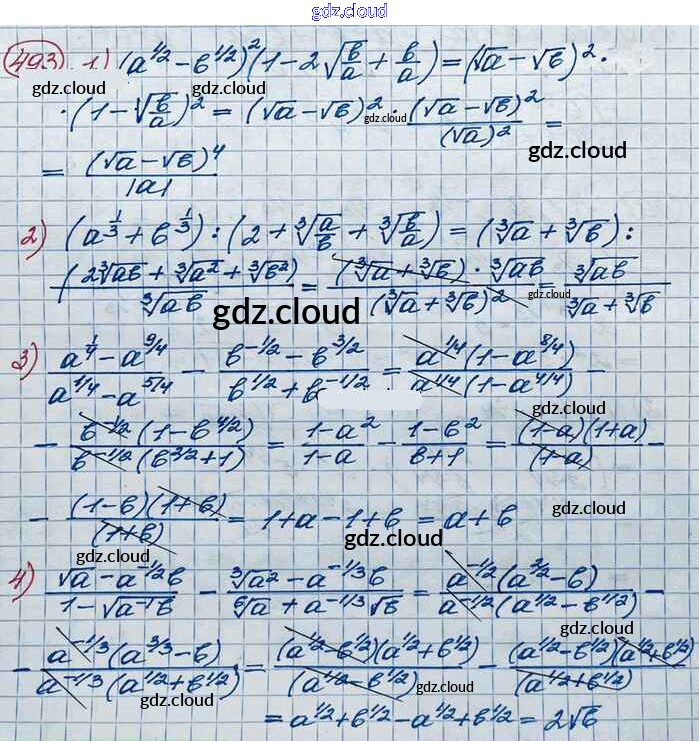 gdz.cloud
493 1.) (a^{1/2} - b^{1/2})^2 (1 - 2√(b/a) + b/a) = (√a - √b)^2 ·
gdz.cloud
· (1 - √(b/a))^2 = (√a - √b)^2 · (√a - √b)^2 / (√a)^2 =
gdz.cloud
gdz.cloud
= (√a - √b)^4 / |a|
2) (a^{1/3} + b^{1/3}) : (2 + ∛(a/b) + ∛(b/a)) = (∛a + ∛b) :
gdz.cloud
(2∛ab + ∛a^2 + ∛b^2) / ∛ab = (∛a + ∛b) · ∛ab / (∛a + ∛b)^2 = ∛ab / (∛a + ∛b)
gdz.cloud
3) (a^{1/4} - a^{9/4}) / (a^{1/4} - a^{5/4}) - (b^{-1/2} - b^{3/2}) / (b^{1/2} + b^{-1/2}) = a^{1/4}(1 - a^{8/4}) / a^{1/4}(1 - a^{4/4}) -
gdz.cloud
- b^{-1/2}(1 - b^{4/2}) / b^{-1/2}(b^{2/2} + 1) = (1 - a^2) / (1 - a) - (1 - b^2) / (b + 1) = (1 - a)(1 + a) / (1 - a) -
gdz.cloud
gdz.cloud
- (1 - b)(1 + b) / (1 + b) = 1 + a - 1 + b = a + b
gdz.cloud
gdz.cloud
4) (√a - a^{-1/2}b) / (1 - √(a^{-1}b)) - (∛a^2 - a^{-1/3}b) / (⁶√a + a^{-1/3}√b) = a^{-1/2}(a^{2/2} - b) / a^{-1/2}(a^{1/2} - b^{1/2}) -
gdz.cloud
- a^{-1/3}(a^{3/3} - b) / a^{-1/3}(a^{1/2} + b^{1/2}) = (a^{1/2} - b^{1/2})(a^{1/2} + b^{1/2}) / (a^{1/2} - b^{1/2}) - (a^{1/2} - b^{1/2})(a^{1/2} + b^{1/2}) / (a^{1/2} + b^{1/2})
gdz.cloud
gdz.cloud
= a^{1/2} + b^{1/2} - a^{1/2} + b^{1/2} = 2√b